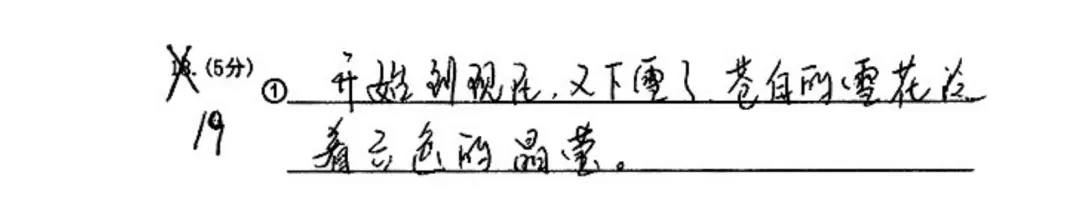 18.(5分) ① 开始到现在,又下雪了.苍白的雪花泛
19 着六色的晶莹。